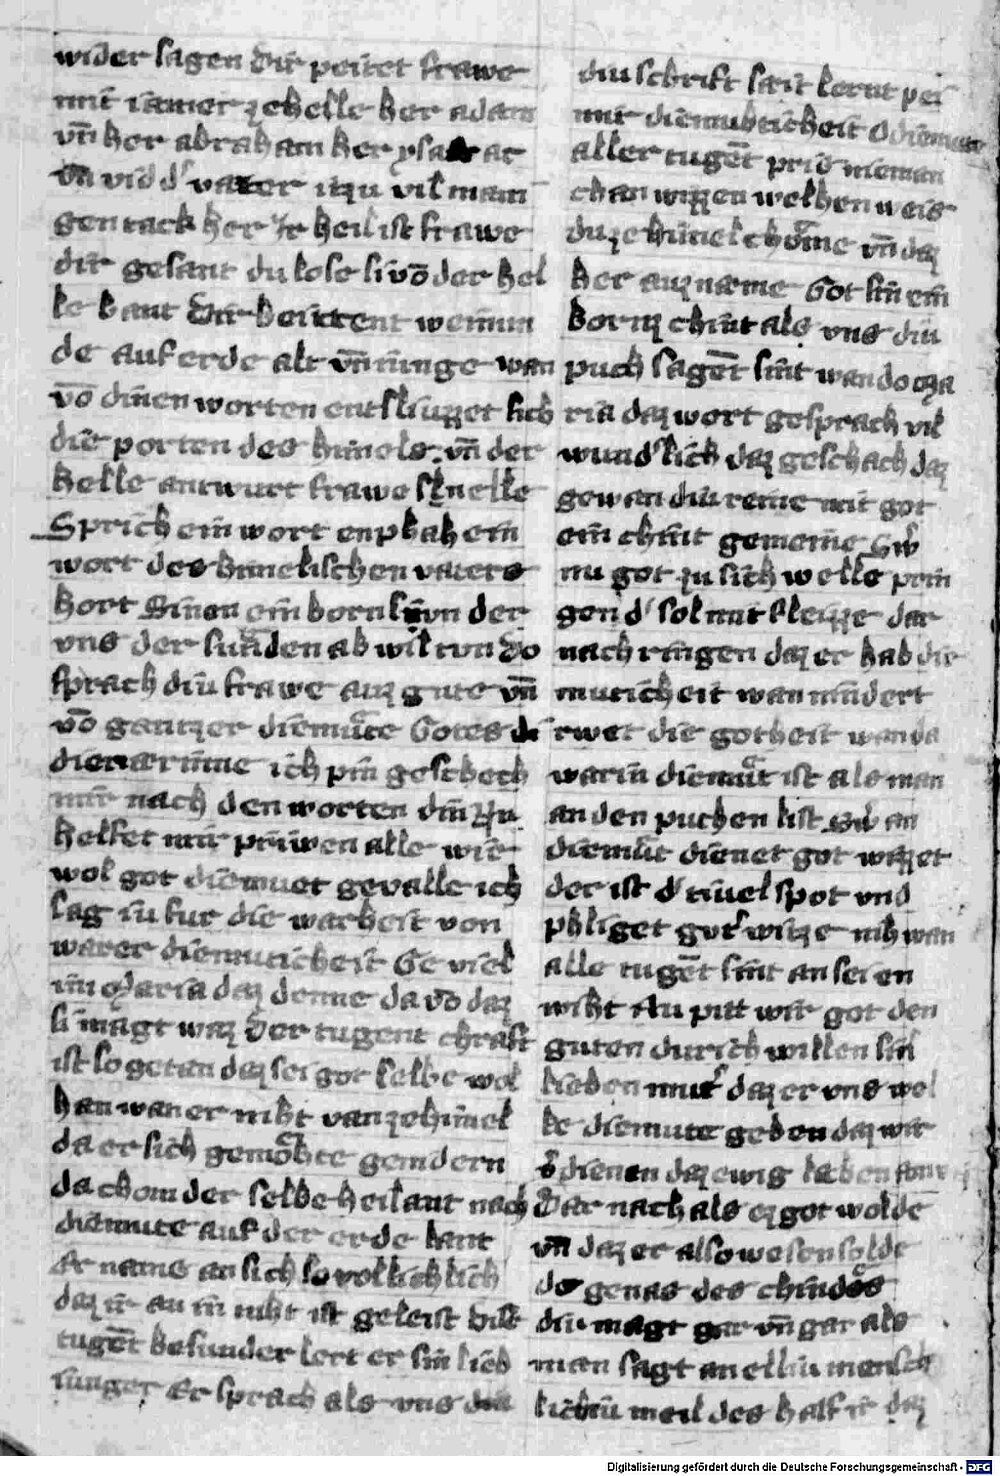 wider sagen Dir peitet frawe
mit iamer zehelle her adam
vn̄ her abraham her ysaac
vn̄ vater vil mani
gen tack her Ir heil ist frawe
dir gesant du lose si vō der hel
le bant Dir beutent
de auf erde alt vn̄ iunge wan
vō dinen worten entsliuzzet sich
die porten des himels vn̄ der
helle antwurt frawe snelle
Sprich ein wort enphah ein
wort des himelischen vaters
hort Sinen einborn sun der
vns der sunden ab wil tvn Do
sprach diu frawe auz gute vn̄
vō gantzer diemute Gotes di
dienærinne ich pin geschech
mir nach den worten din Nu
helfet mir pruwen alle wie
wol got diemuet gevalle ich
sag iu fur die warheit von
warer diemuticheit Ge viel
im Maria daz denne da vō daz
si magt waz Der tugent chraft
ist so getan daz sei got selbe wol
han wan er niht van zehimel
da er sich gemohte genidern
da chom der selbe heilant nach
diemute auf der erde lant
Er name an sich so vollichlich
daz ir an in niht ist geleich
tugēt besunder lert er sin lieb
iunger Er sprach als vns diu
diu schrift sait lernt pei
mir diemuticheit O diemuet
aller tugēt pris nieman
chan wizzen welhen weis
du ze himel chome vn̄ daz
her auz næme Got sin ein
bornz chint als vns diu
puch sagēt sint wan do Ma
ria daz wort gesprach vil
wund'lich daz geschach daz
gewan diu reine mit got
ein chint gemeine Sw'
nu got zu sich welle prin
gen d' sol mit fleizze dar
nach ringen daz er hab die
muticheit wan mindert
rwet die gotheit wan da
warin diemut ist als man
an den puchen list Sw' an
diemut dienet got wizzet
der ist d' tiuel spot vnd
phliget gut' witze niht wan
alle tugēt sint an sei en
wiht Nu pitt wir got den
guten durich willen sin
lieben mut' daz er vns wel
le diemute geben daz wir
v'dienen daz ewig leben
Dar nach als ez got wolde
vn̄ daz er also wesen solde
do genas des chindes
diu magt gar vn̄ gar als
man sagt an elliu mensch
lichiu meil des half ir daz
Digitalisierung gefördert durch die Deutsche Forschungsgemeinschaft - DFG